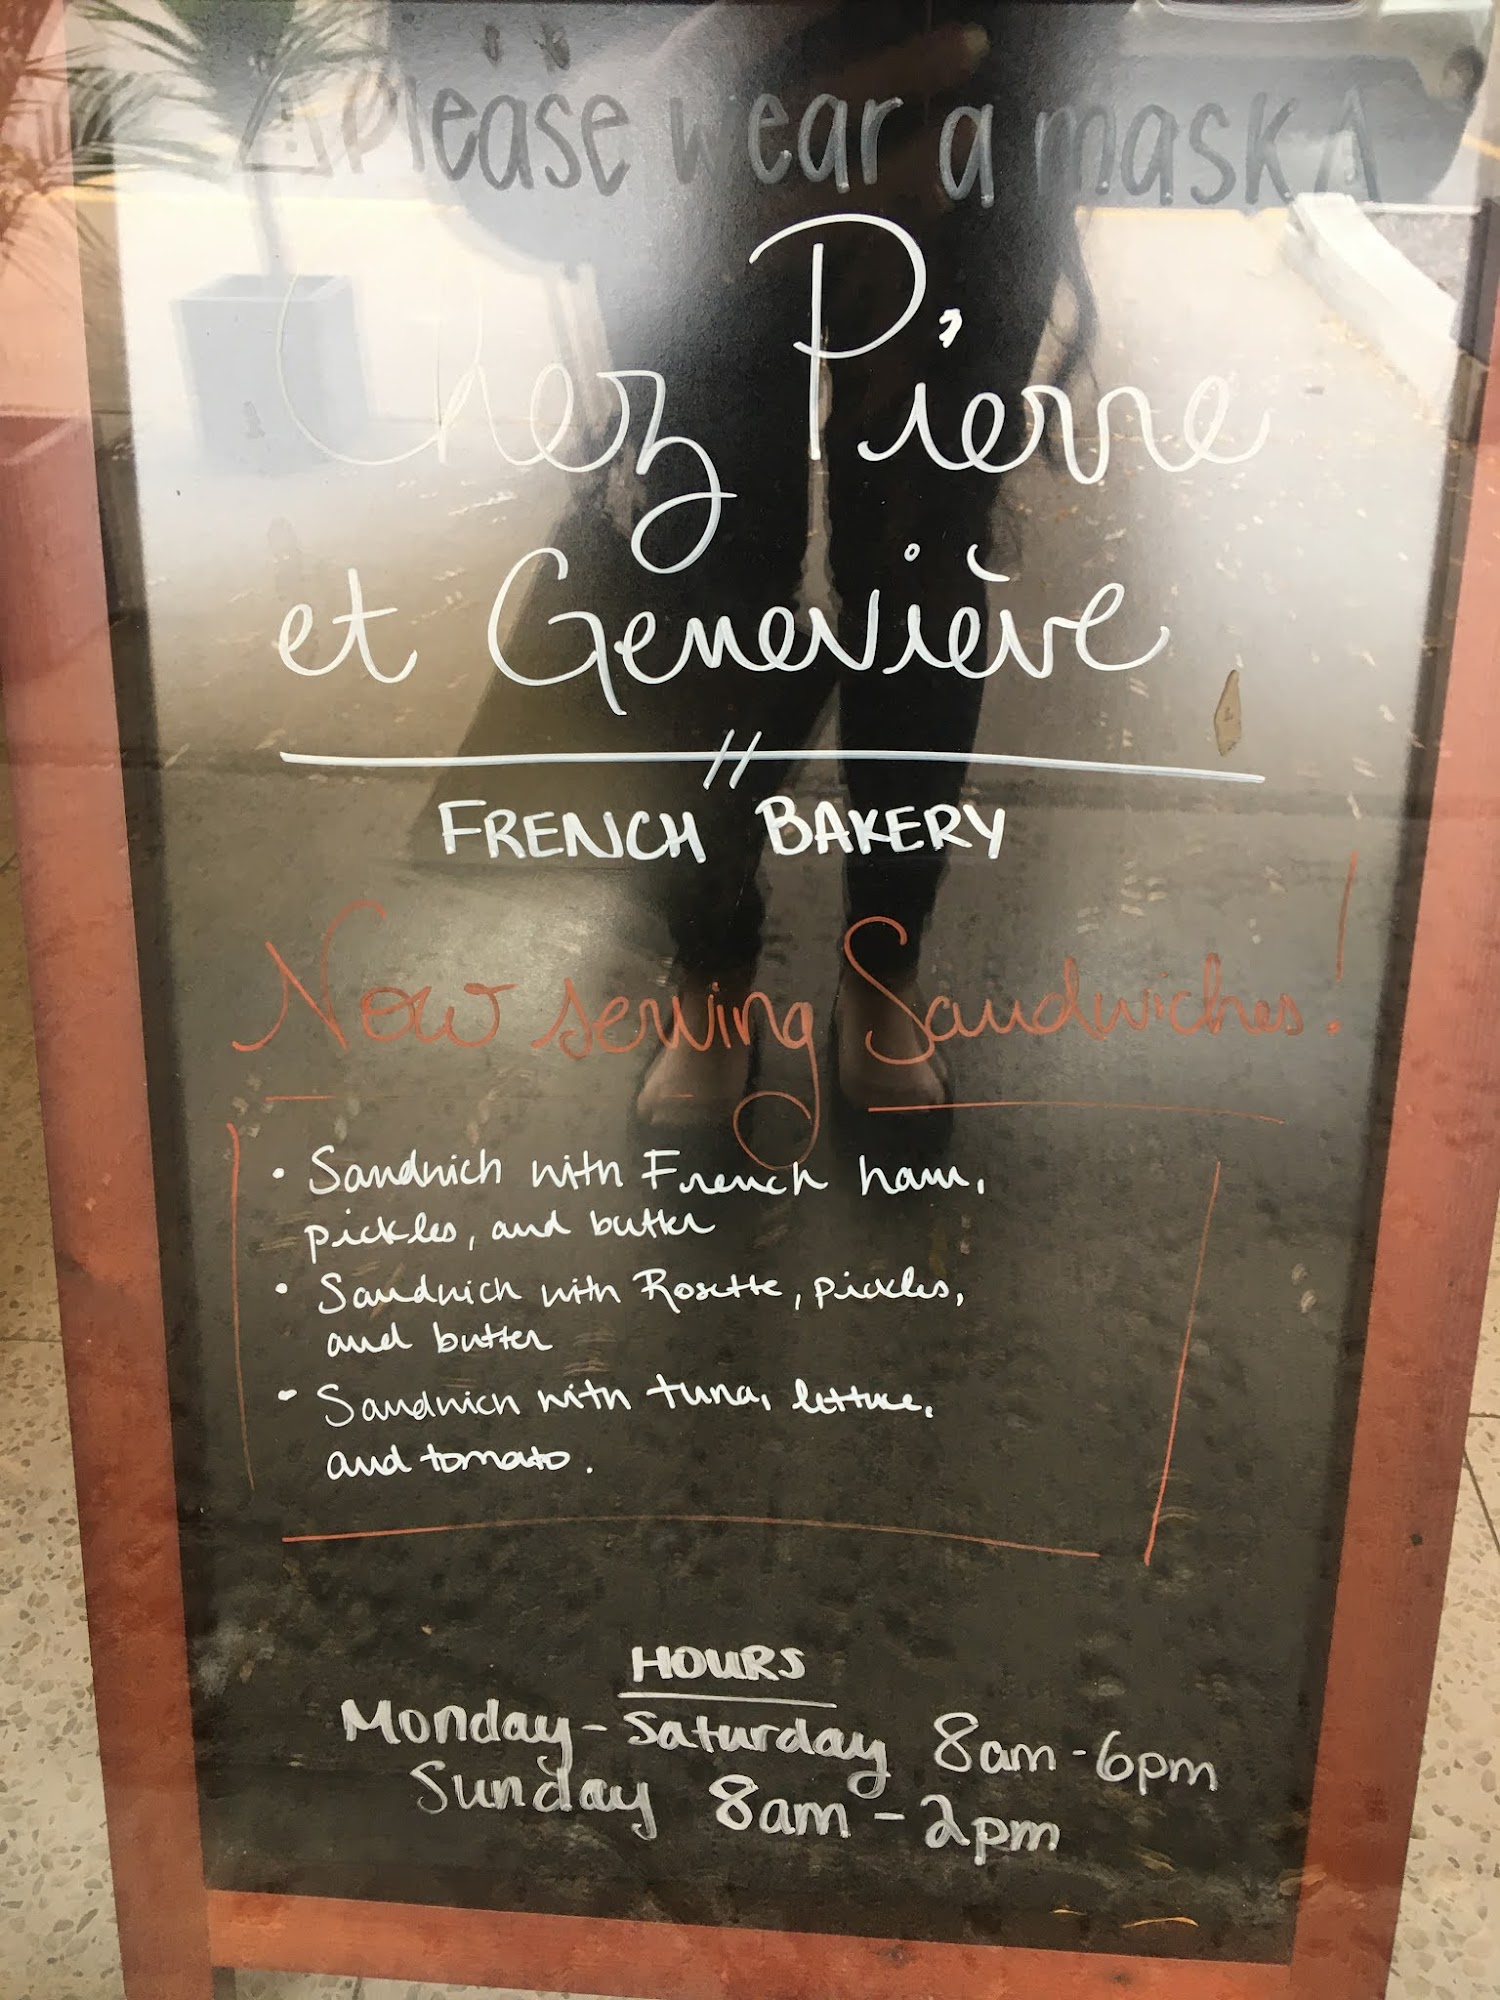 Please wear a mask
Chez Pierre
et Geneviève
FRENCH BAKERY
Now serving Sandwiches!
• Sandwich with French ham,
pickles, and butter
• Sandwich with Rosette, pickles,
and butter
• Sandwich with tuna, lettuce,
and tomato.
HOURS
Monday-Saturday 8am-6pm
Sunday 8am-2pm